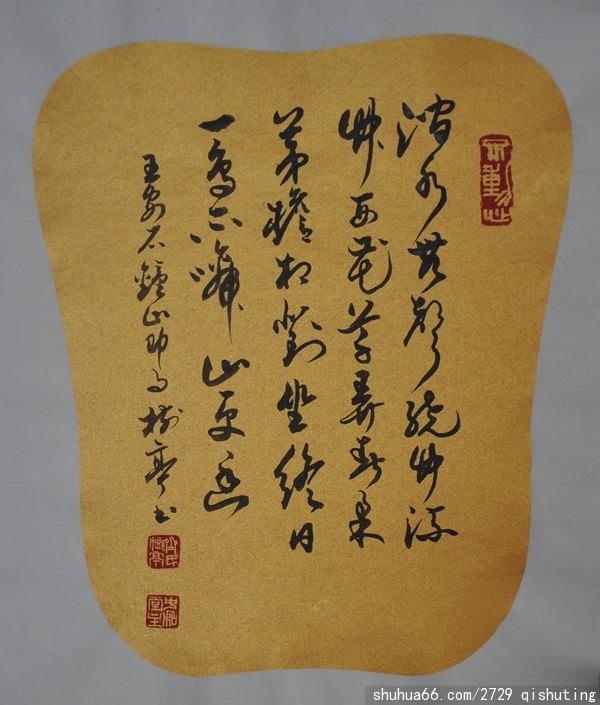 不動心
澗水無聲繞竹流
竹西花草弄春柔
茅檐相對坐終日
一鳥不啼山更幽
王安石鐘山即事樹亭書
戚氏樹亭
shuhua66.com/2729 qishuting